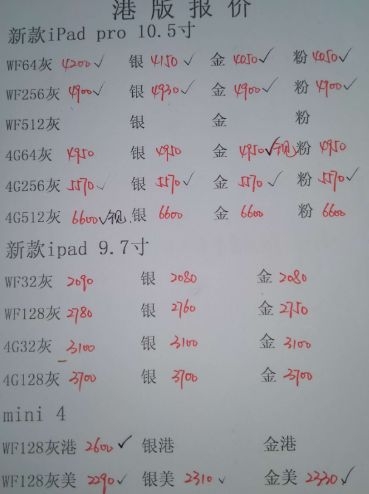 港版报价
新款iPad pro 10.5寸
WF64灰 4200✓ 银 4150✓ 金 4050✓ 粉 4050✓
WF256灰 4900✓ 银 4930✓ 金 4900✓ 粉 4900✓
WF512灰 银 金 粉
4G64灰 4950 银 4950 金 4950✓现 粉 4950
4G256灰 5570✓ 银 5570✓ 金 5570✓ 粉 5570✓
4G512灰 6600✓现 银 6600 金 6600 粉 6600
新款ipad 9.7寸
WF32灰 2090 银 2080 金 2080
WF128灰 2780 银 2760 金 2750
4G32灰 3100 银 3100 金 3100
4G128灰 3700 银 3700 金 3700
mini 4
WF128灰港 2600✓ 银港 金港
WF128灰美 2290✓ 银美 2310✓ 金美 2330✓